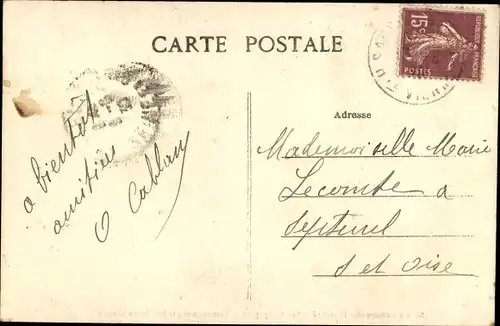 CARTE POSTALE
15c
POSTES
Adresse
a bientôt
amitiés
O Cablan
Mademoiselle Marie
Lecomte a
Septeuil
S et Oise